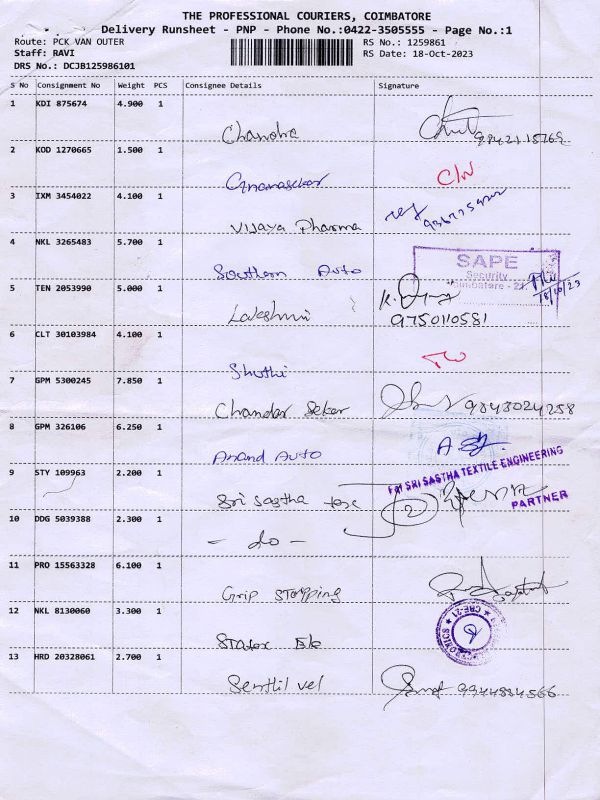 THE PROFESSIONAL COURIERS, COIMBATORE
Delivery Runsheet - PNP - Phone No.:0422-3505555 - Page No.:1
Route: PCK VAN OUTER RS No.: 1259861
Staff: RAVI RS Date: 18-Oct-2023
DRS No.: DCJB125986101
S No Consignment No Weight PCS Consignee Details Signature
1 KDI 875674 4.900 1
Chandra 9842115769
2 KOD 1270665 1.500 1
Gnanasekar C/w
3 IXM 3454022 4.100 1
Vijaya Pharma
4 NKL 3265483 5.700 1
SAPE
Security
Coimbatore - 21
Southern Auto 18/10/23
5 TEN 2053990 5.000 1
Lakshmi 9750110581
6 CLT 30103984 4.100 1
Shuthi
7 GPM 5300245 7.850 1
Chandar Sekar 9843024258
8 GPM 326106 6.250 1
Anand Auto
For SRI SASTHA TEXTILE ENGINEERING
9 STY 109963 2.200 1
Sri Sastha PARTNER
10 DDG 5039388 2.300 1
- do -
11 PRO 15563328 6.100 1
Grip
12 NKL 8130060 3.300 1
CBE-21
13 HRD 20328061 2.700 1
Senthil vel 9944884566